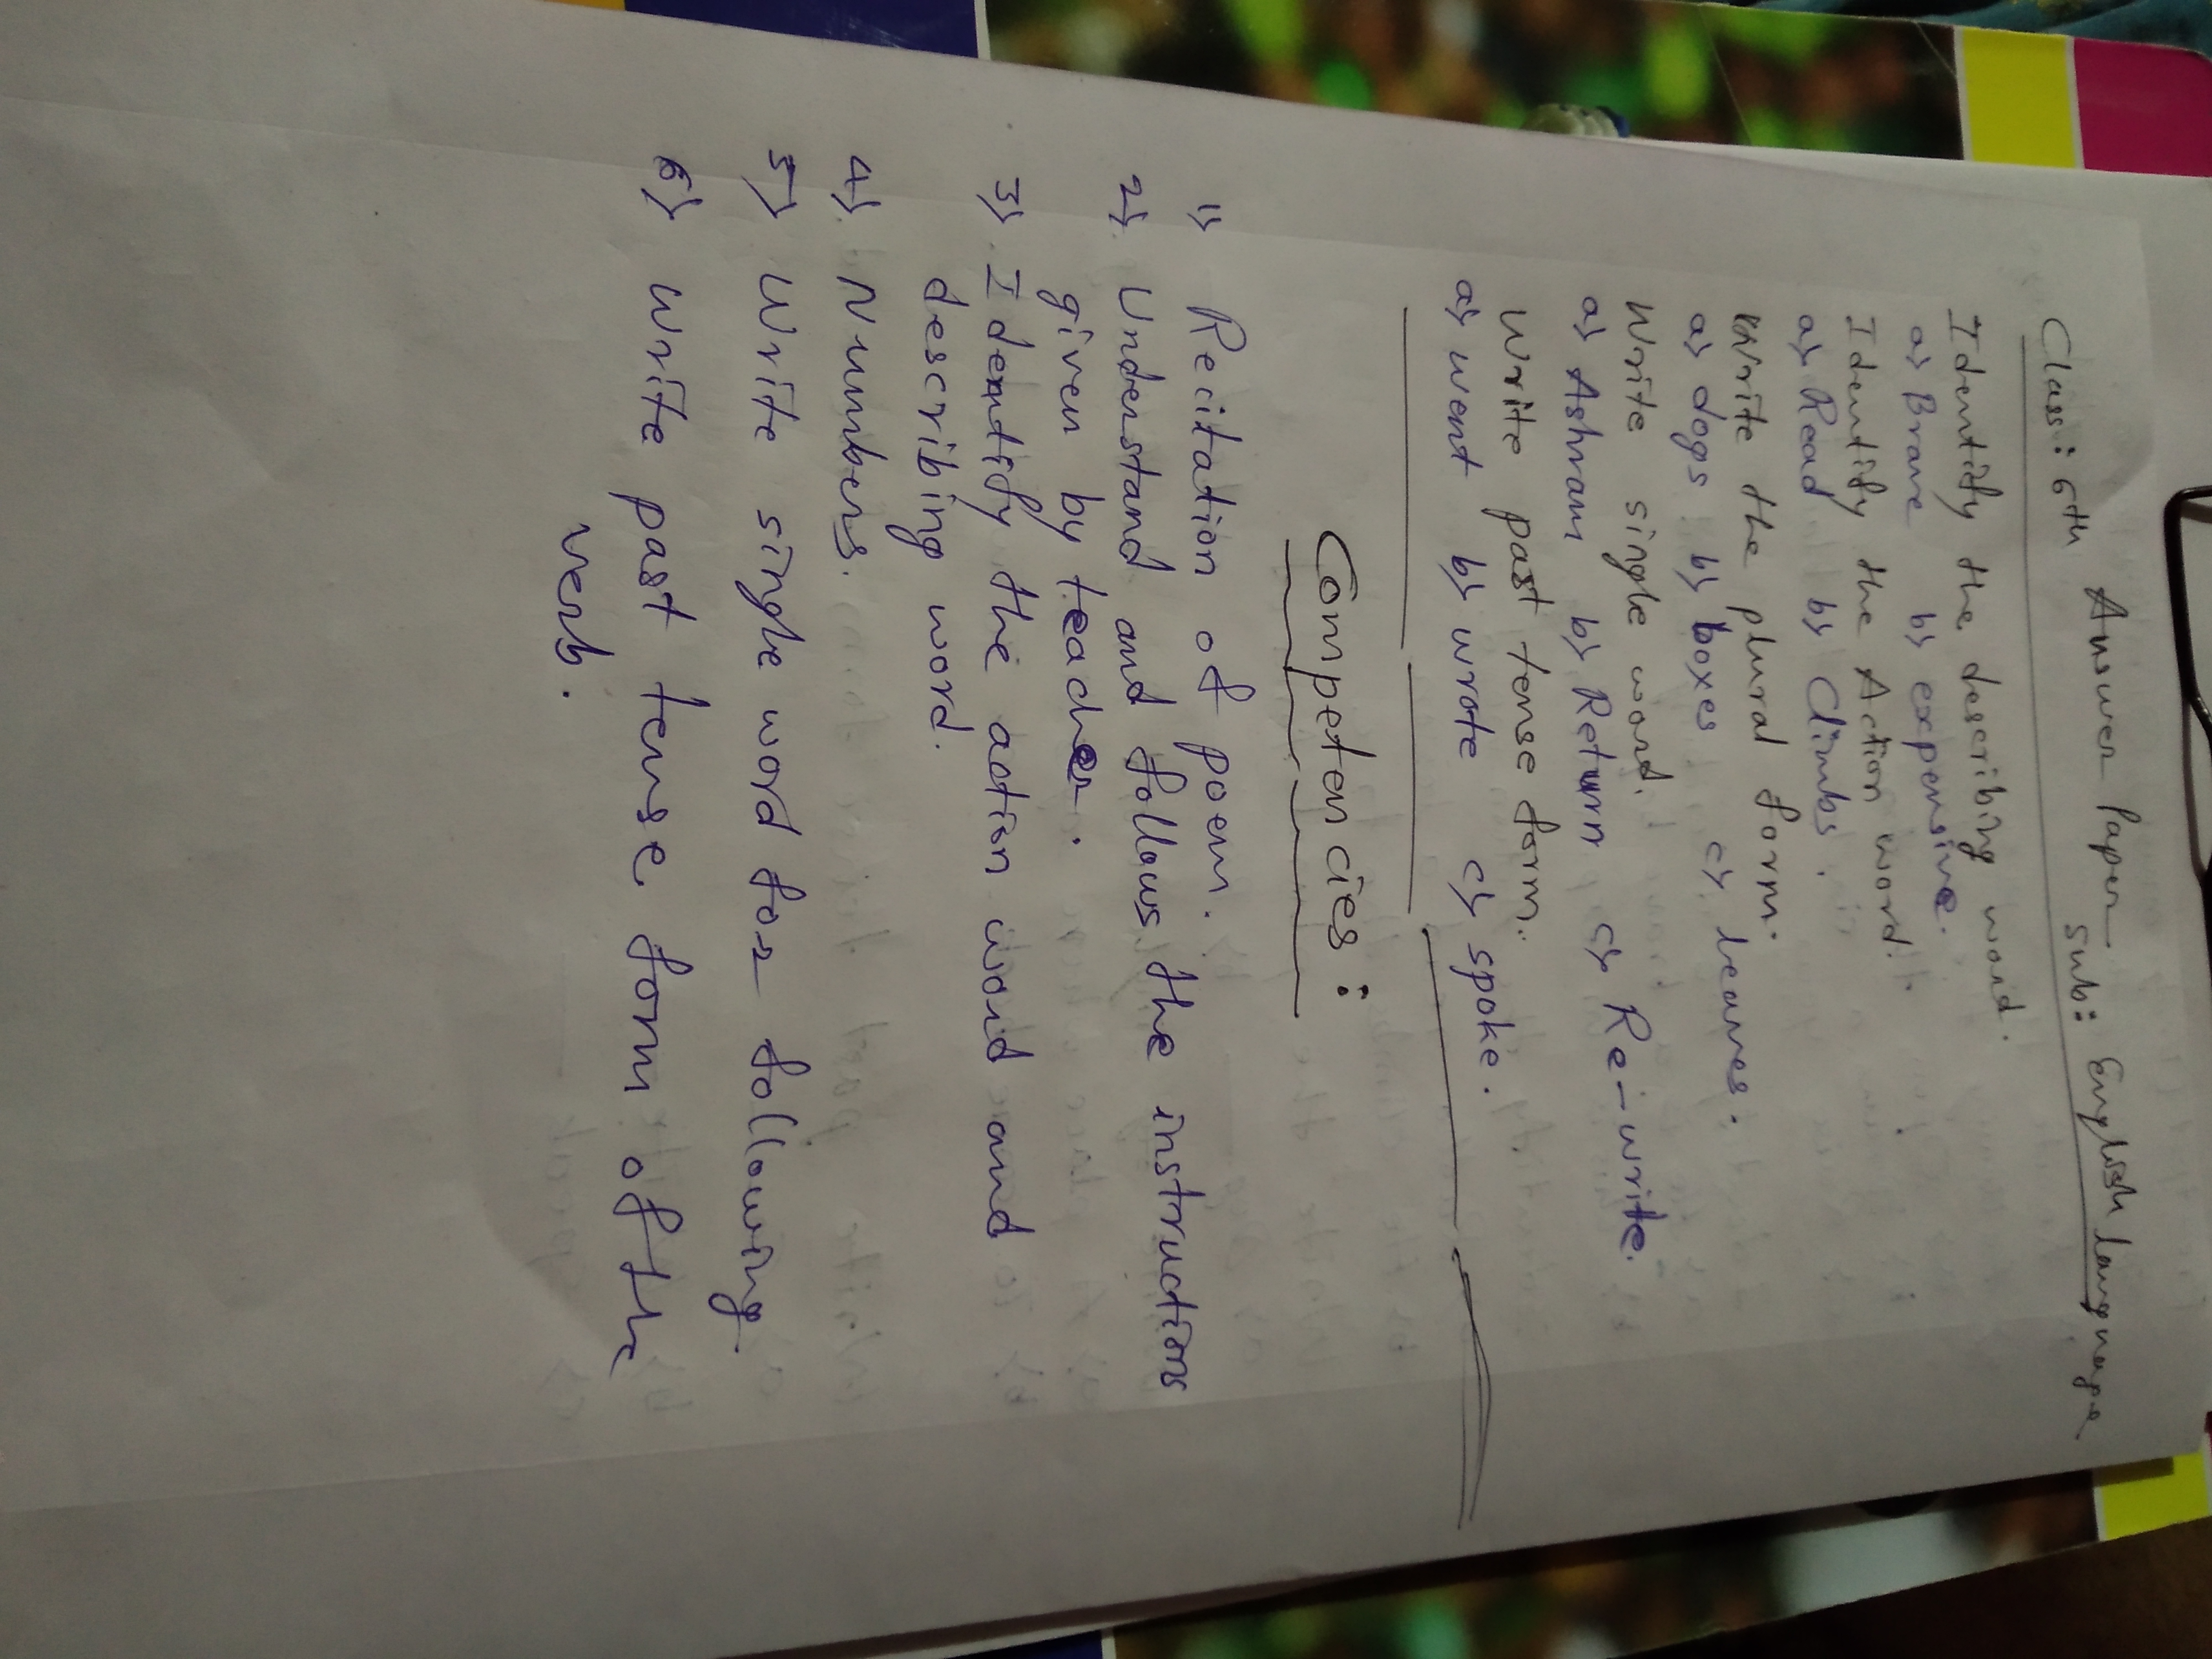 Answer Paper
Class: 6th Sub: English language
Identify the describing word.
a) Brave b) expensive.
Identify the Action word.
a) Read b) Climbs.
Write the plural form.
a) dogs b) boxes c) leaves.
Write single word.
a) Ashram b) Return c) Re-write.
Write past tense form.
a) went b) wrote c) spoke.
Competencies:
1) Recitation of poem.
2) Understand and follows the instructions
given by teacher.
3) Identify the action word and
describing word.
4) Numbers.
5) Write single word for following.
6) write past tense form of the
verb.